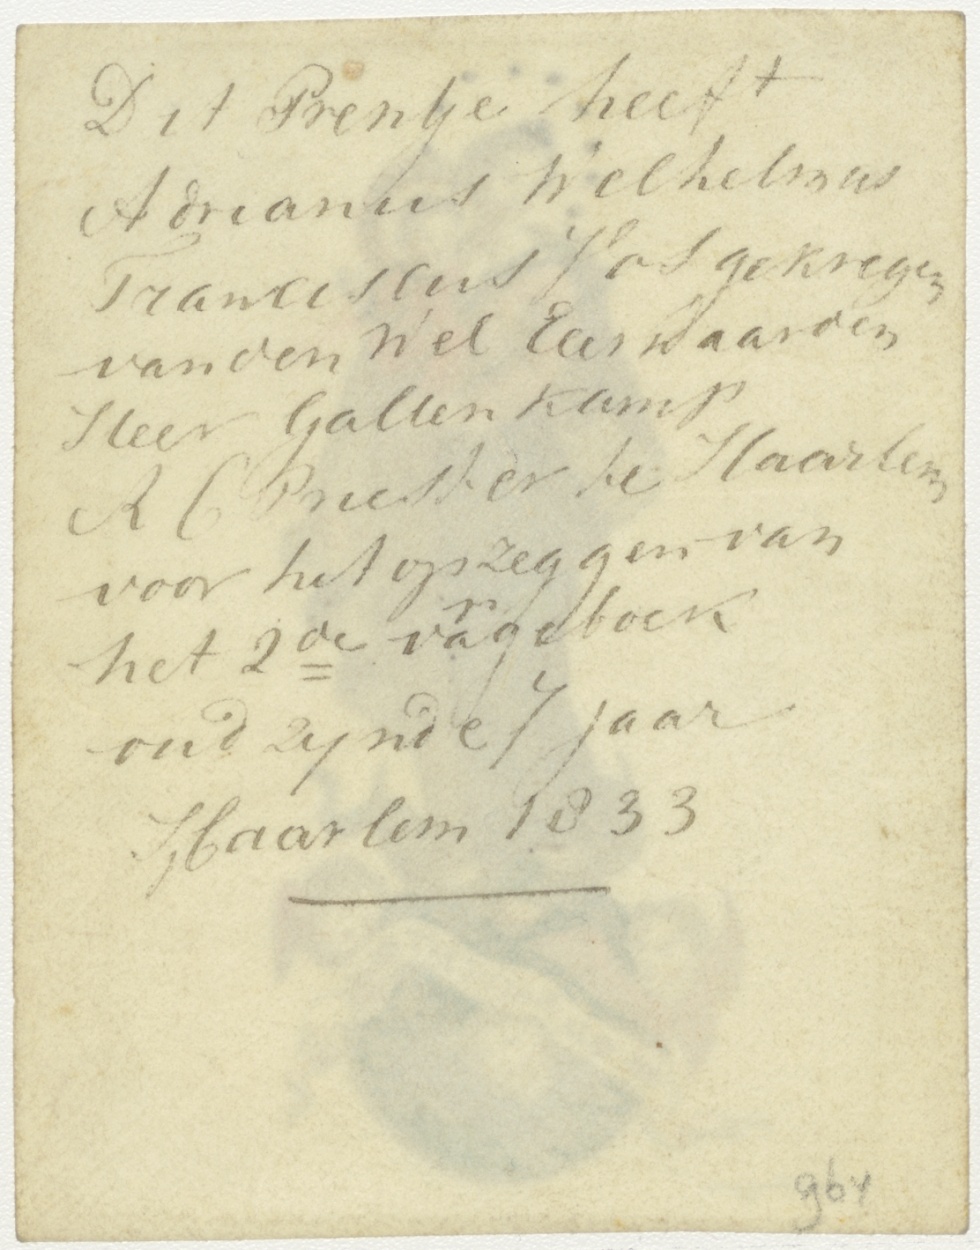 Dit Prentje heeft
Adrianus Welhelmus
Franciscus Vos gekregen
van den Wel Eerwaarden
Heer Gallenkamp
R C Priester te Haarlem
voor het opzeggen van
het 2de vrageboek
oud zynde 7 jaar
Haarlem 1833
gby